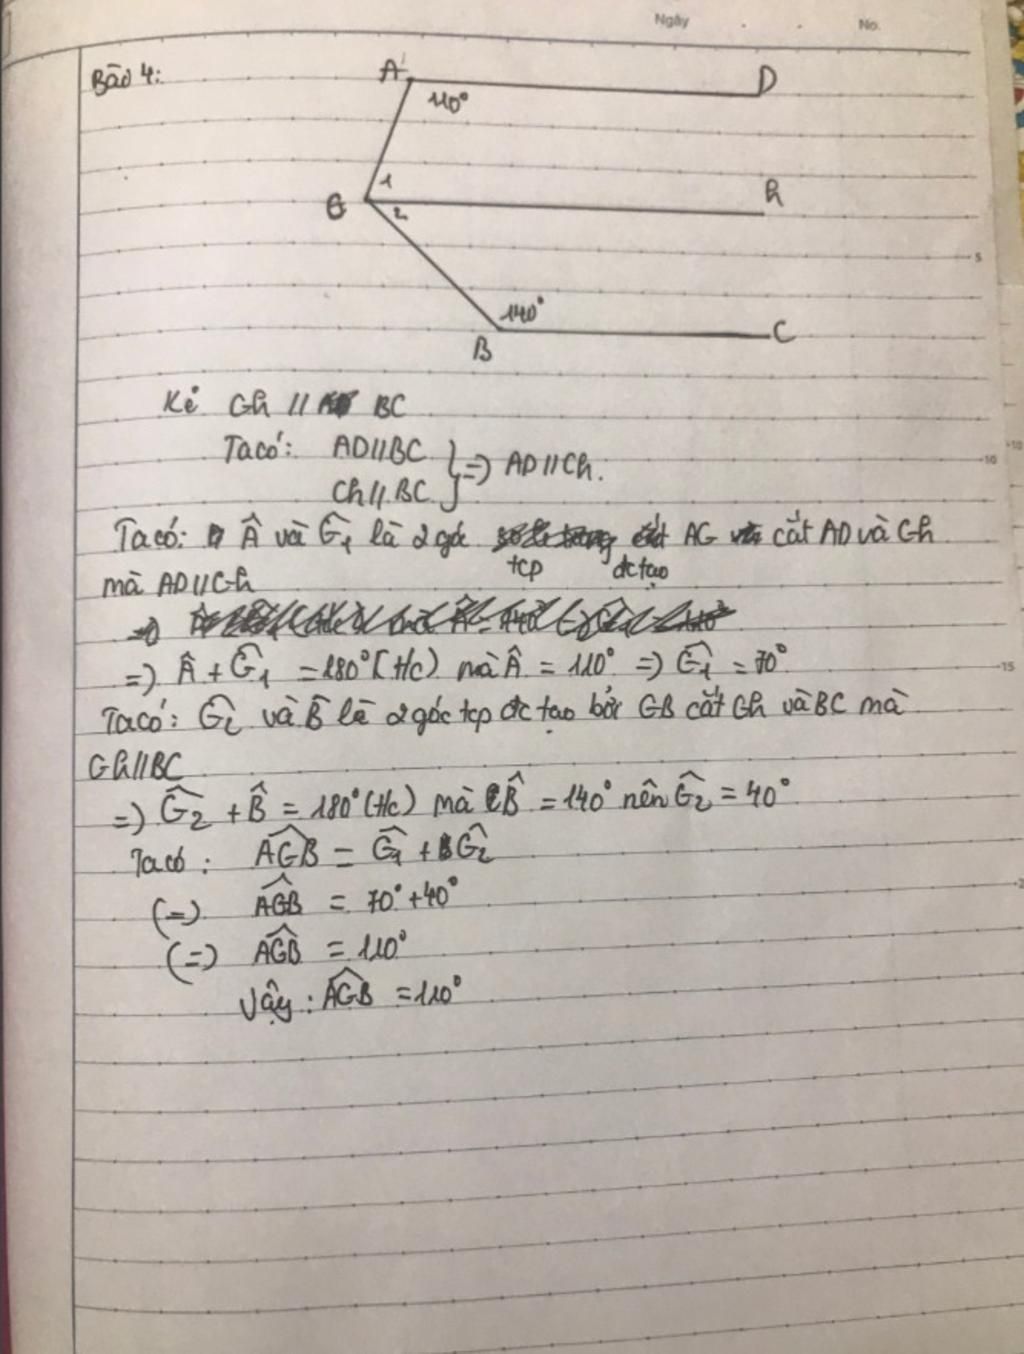 Ngày . . No.
Bài 4:
A D
110°
1
G h
2
5
140°
B C
Kẻ Gh // BC
Ta có: AD // BC
Gh // BC } => AD // Gh.
10
Ta có: Â và Ĝ1 là 2 góc tcp đc tạo AG cắt AD và Gh
mà AD // Gh
=>
=> Â + Ĝ1 = 180° (t/c) mà Â = 110° => Ĝ1 = 70°
15
Ta có: Ĝ2 và B̂ là 2 góc tcp đc tạo bởi GB cắt Gh và BC mà
Gh // BC
=> Ĝ2 + B̂ = 180° (t/c) mà B̂ = 140° nên Ĝ2 = 40°
Ta có: AGB̂ = Ĝ1 + Ĝ2
(=) AGB̂ = 70° + 40°
(=) AGB̂ = 110°
Vậy: AGB̂ = 110°